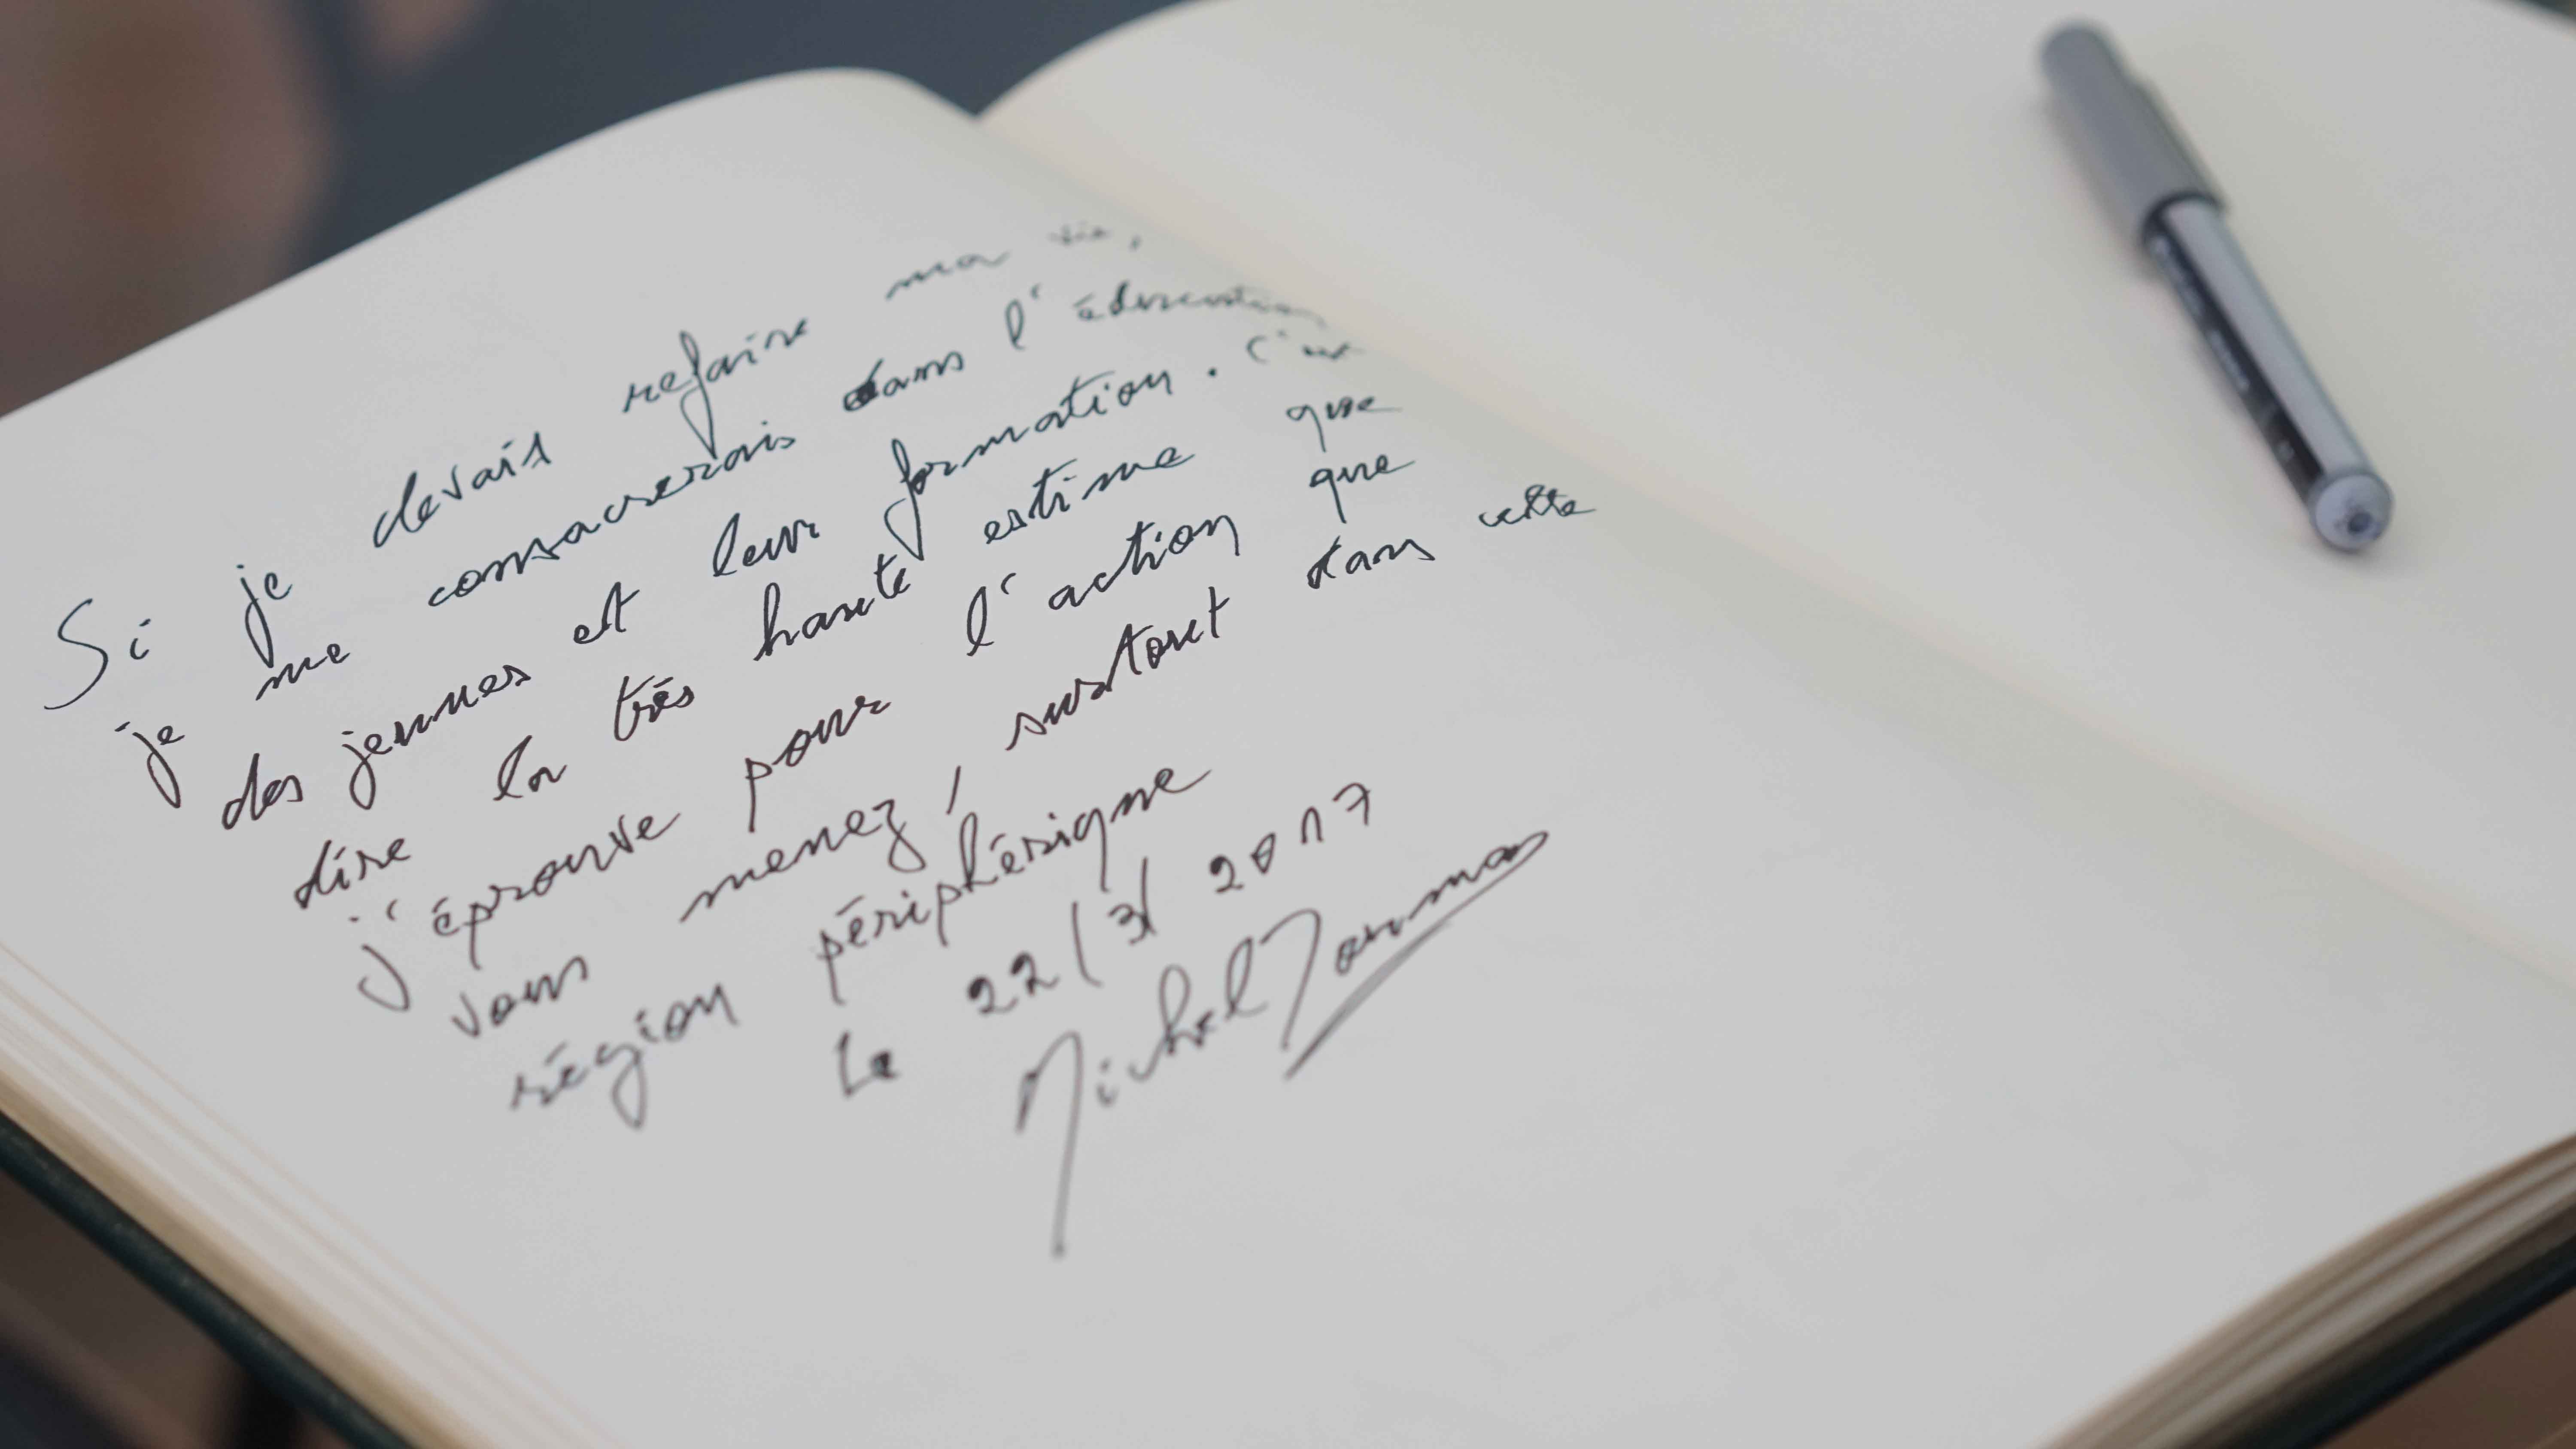 Si je devais refaire ma vie,
je me consacrerais dans l'éducation
des jeunes et leur formation. C'est
dire la très haute estime que
j'éprouve pour l'action que
vous menez, surtout dans cette
région périphérique
Le 22/3/2017
Michel